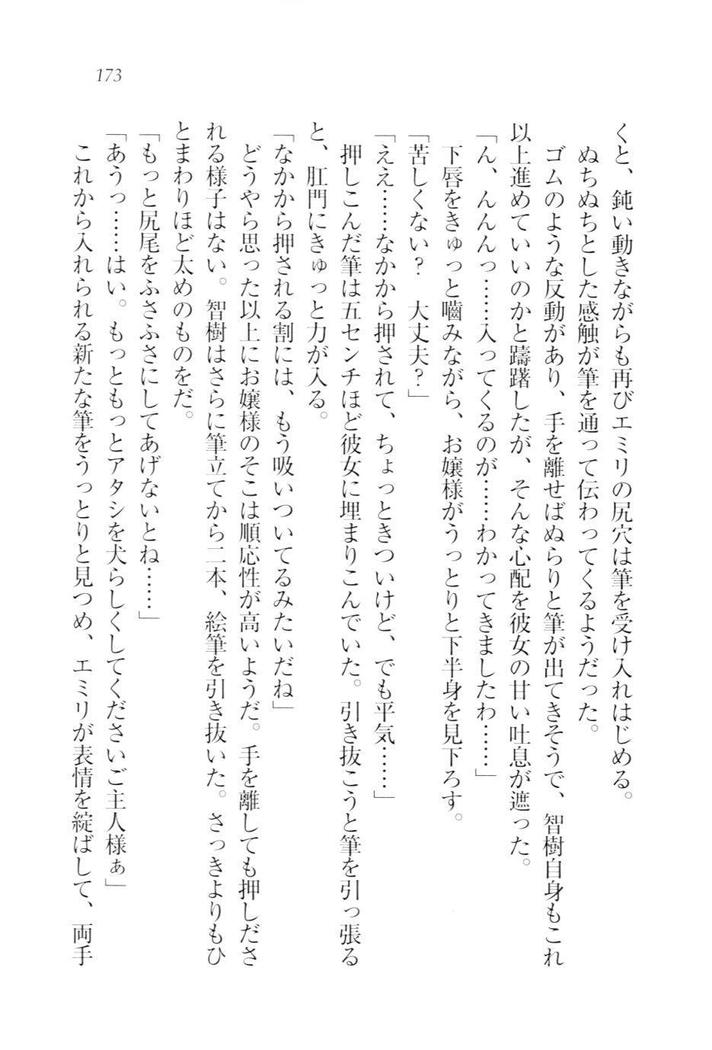 173
くと、鈍い動きながらも再びエミリの尻穴は筆を受け入れはじめる。
ぬちぬちとした感触が筆を通って伝わってくるようだった。
ゴムのような反動があり、手を離せばぬらりと筆が出てきそうで、智樹自身もこれ
以上進めていいのかと躊躇したが、そんな心配を彼女の甘い吐息が遮った。
「ん、んんんっ……入ってくるのが……わかってきましたわ……」
下唇をきゅっと嚙みながら、お嬢様がうっとりと下半身を見下ろす。
「苦しくない？　大丈夫？」
「ええ……なかから押されて、ちょっときついけど、でも平気……」
押しこんだ筆は五センチほど彼女に埋まりこんでいた。引き抜こうと筆を引っ張る
と、肛門にきゅっと力が入る。
「なかから押される割には、もう吸いついてるみたいだね」
どうやら思った以上にお嬢様のそこは順応性が高いようだ。手を離しても押しださ
れる様子はない。智樹はさらに筆立てから二本、絵筆を引き抜いた。さっきよりもひ
とまわりほど太めのものをだ。
「もっと尻尾をふさふさにしてあげないとね……」
「あうっ……はい。もっともっとアタシを犬らしくしてくださいご主人様ぁ」
これから入れられる新たな筆をうっとりと見つめ、エミリが表情を綻ばして、両手